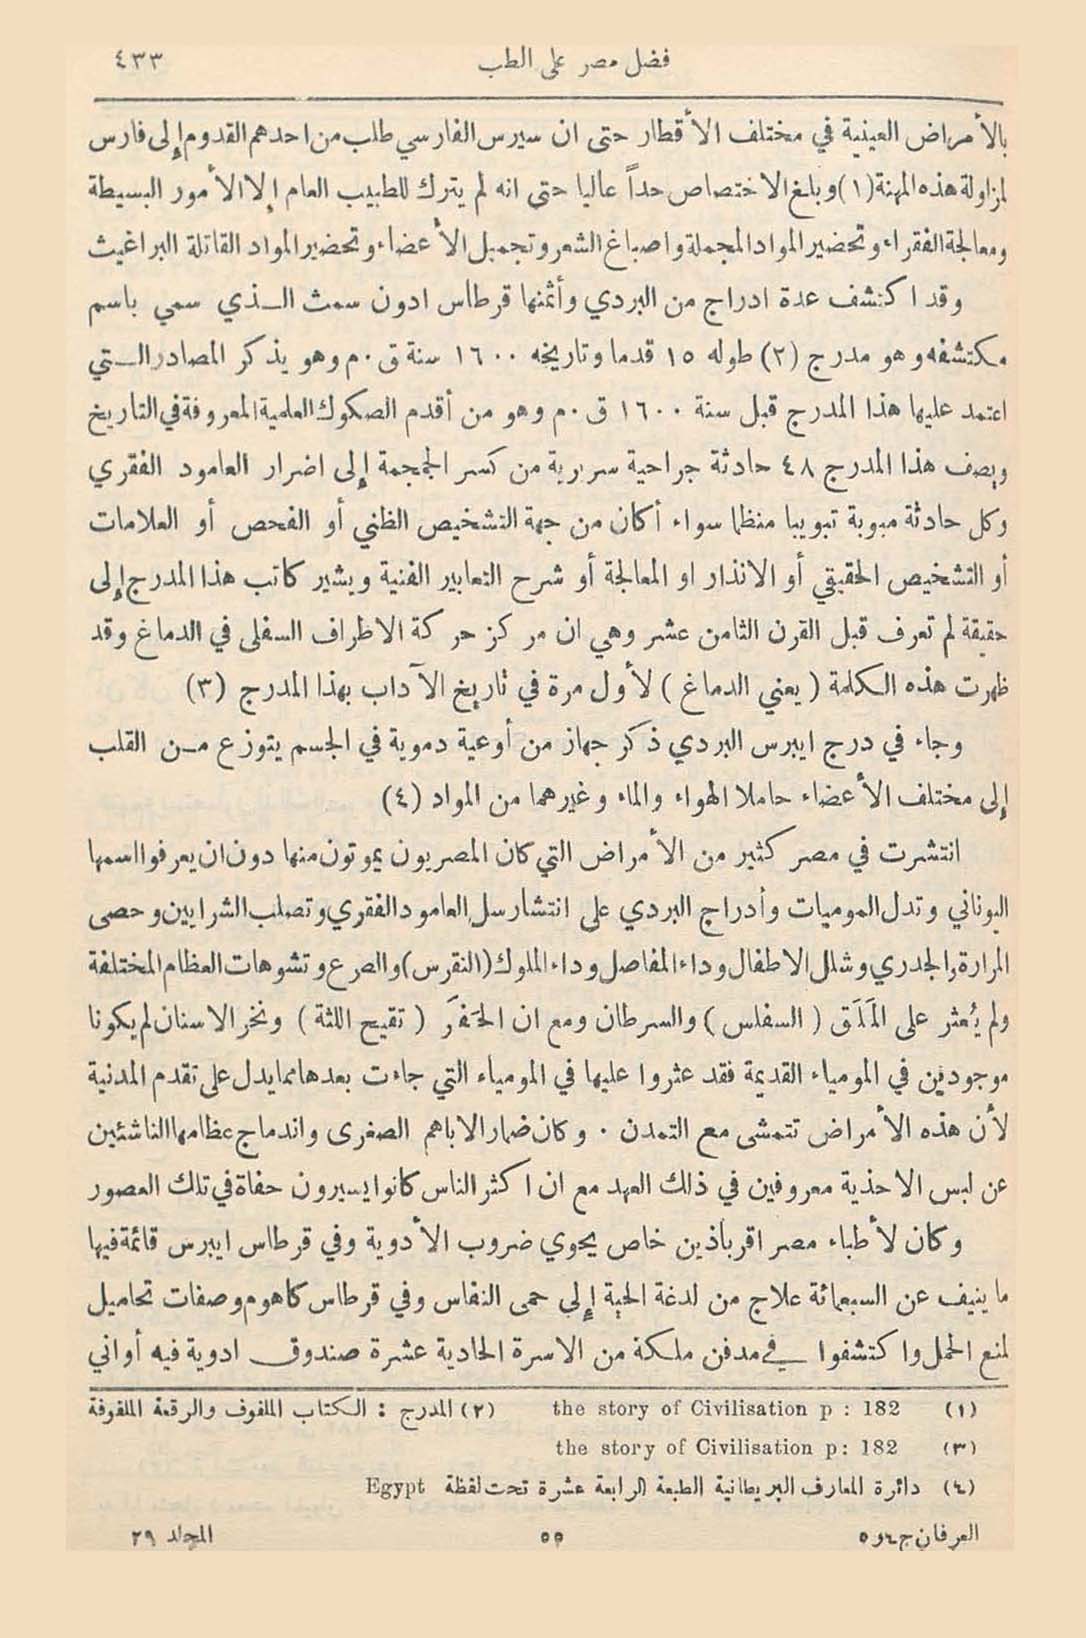 فضل مصر على الطب ٤٣٣
بالأمراض العينية في مختلف الأقطار حتى ان سيرس الفارسي طلب من احدهم القدوم إلى فارس
لمزاولة هذه المهنة (١) وبلغ الاختصاص حداً عاليا حتى انه لم يترك للطبيب العام إلا الأمور البسيطة
ومعالجة الفقراء وتحضير المواد المجملة واصباغ الشعر وتجميل الأعضاء وتحضير المواد القاتلة البراغيث
وقد اكتشف عدة ادراج من البردي وأثمنها قرطاس ادون سمث الـذي سمي باسم
مكتشفه وهو مدرج (٢) طوله ١٥ قدما وتاريخه ١٦٠٠ سنة ق.م وهو يذكر المصادر الـتي
اعتمد عليها هذا المدرج قبل سنة ١٦٠٠ ق.م وهو من أقدم الصكوك العلمية المعروفة في التاريخ
ويصف هذا المدرج ٤٨ حادثة جراحية سريرية من كسر الجمجمة إلى اضرار العامود الفقري
وكل حادثة مبوبة تبويبا منظما سواء أكان من جهة التشخيص الظني أو الفحص أو العلامات
أو التشخيص الحقيقي أو الانذار او المعالجة أو شرح التعابير الفنية ويشير كاتب هذا المدرج إلى
حقيقة لم تعرف قبل القرن الثامن عشر وهي ان مركز حركة الاطراف السفلى في الدماغ وقد
ظهرت هذه الكلمة ( يعني الدماغ ) لأول مرة في تاريخ الآداب بهذا المدرج (٣)
وجاء في درج ايبرس البردي ذكر جهاز من أوعية دموية في الجسم يتوزع مـن القلب
إلى مختلف الأعضاء حاملا الهواء والماء وغيرهما من المواد (٤)
انتشرت في مصر كثير من الأمراض التي كان المصريون يموتون منها دون ان يعرفوا اسمها
اليوناني وتدل الموميات وأدراج البردي على انتشار سل العامود الفقري وتصلب الشرايين وحصى
المرارة والجدري وشلل الاطفال وداء المفاصل وداء الملوك (النقرس) والصرع وتشوهات العظام المختلفة
ولم يُعثر على المَلَق ( السفلس ) والسرطان ومع ان الحَفَر ( تقيح اللثة ) ونخر الاسنان لم يكونا
موجودين في المومياء القديمة فقد عثروا عليها في المومياء التي جاءت بعدها مما يدل على تقدم المدنية
لأن هذه الأمراض تتمشى مع التمدن . وكان ضمار الاباهم الصغرى واندماج عظامها الناشئين
عن لبس الاحذية معروفين في ذلك العهد مع ان اكثر الناس كانوا يسيرون حفاة في تلك العصور
وكان لأطباء مصر اقرباذين خاص يحوي ضروب الأدوية وفي قرطاس ايبرس قائمة فيها
ما ينيف عن السبعمائة علاج من لدغة الحية إلى حمى النفاس وفي قرطاس كاهوم وصفات تحاميل
لمنع الحمل واكتشفوا في مدفن ملكة من الاسرة الحادية عشرة صندوق ادوية فيه أواني
(١) the story of Civilisation p : 182 (٢) المدرج : الكتاب الملفوف والرقعة الملفوفة
(٣) the story of Civilisation p: 182
(٤) دائرة المعارف البريطانية الطبعة الرابعة عشرة تحت لفظة Egypt
العرفان ج٤و٥ ٥٥ المجلد ٢٩